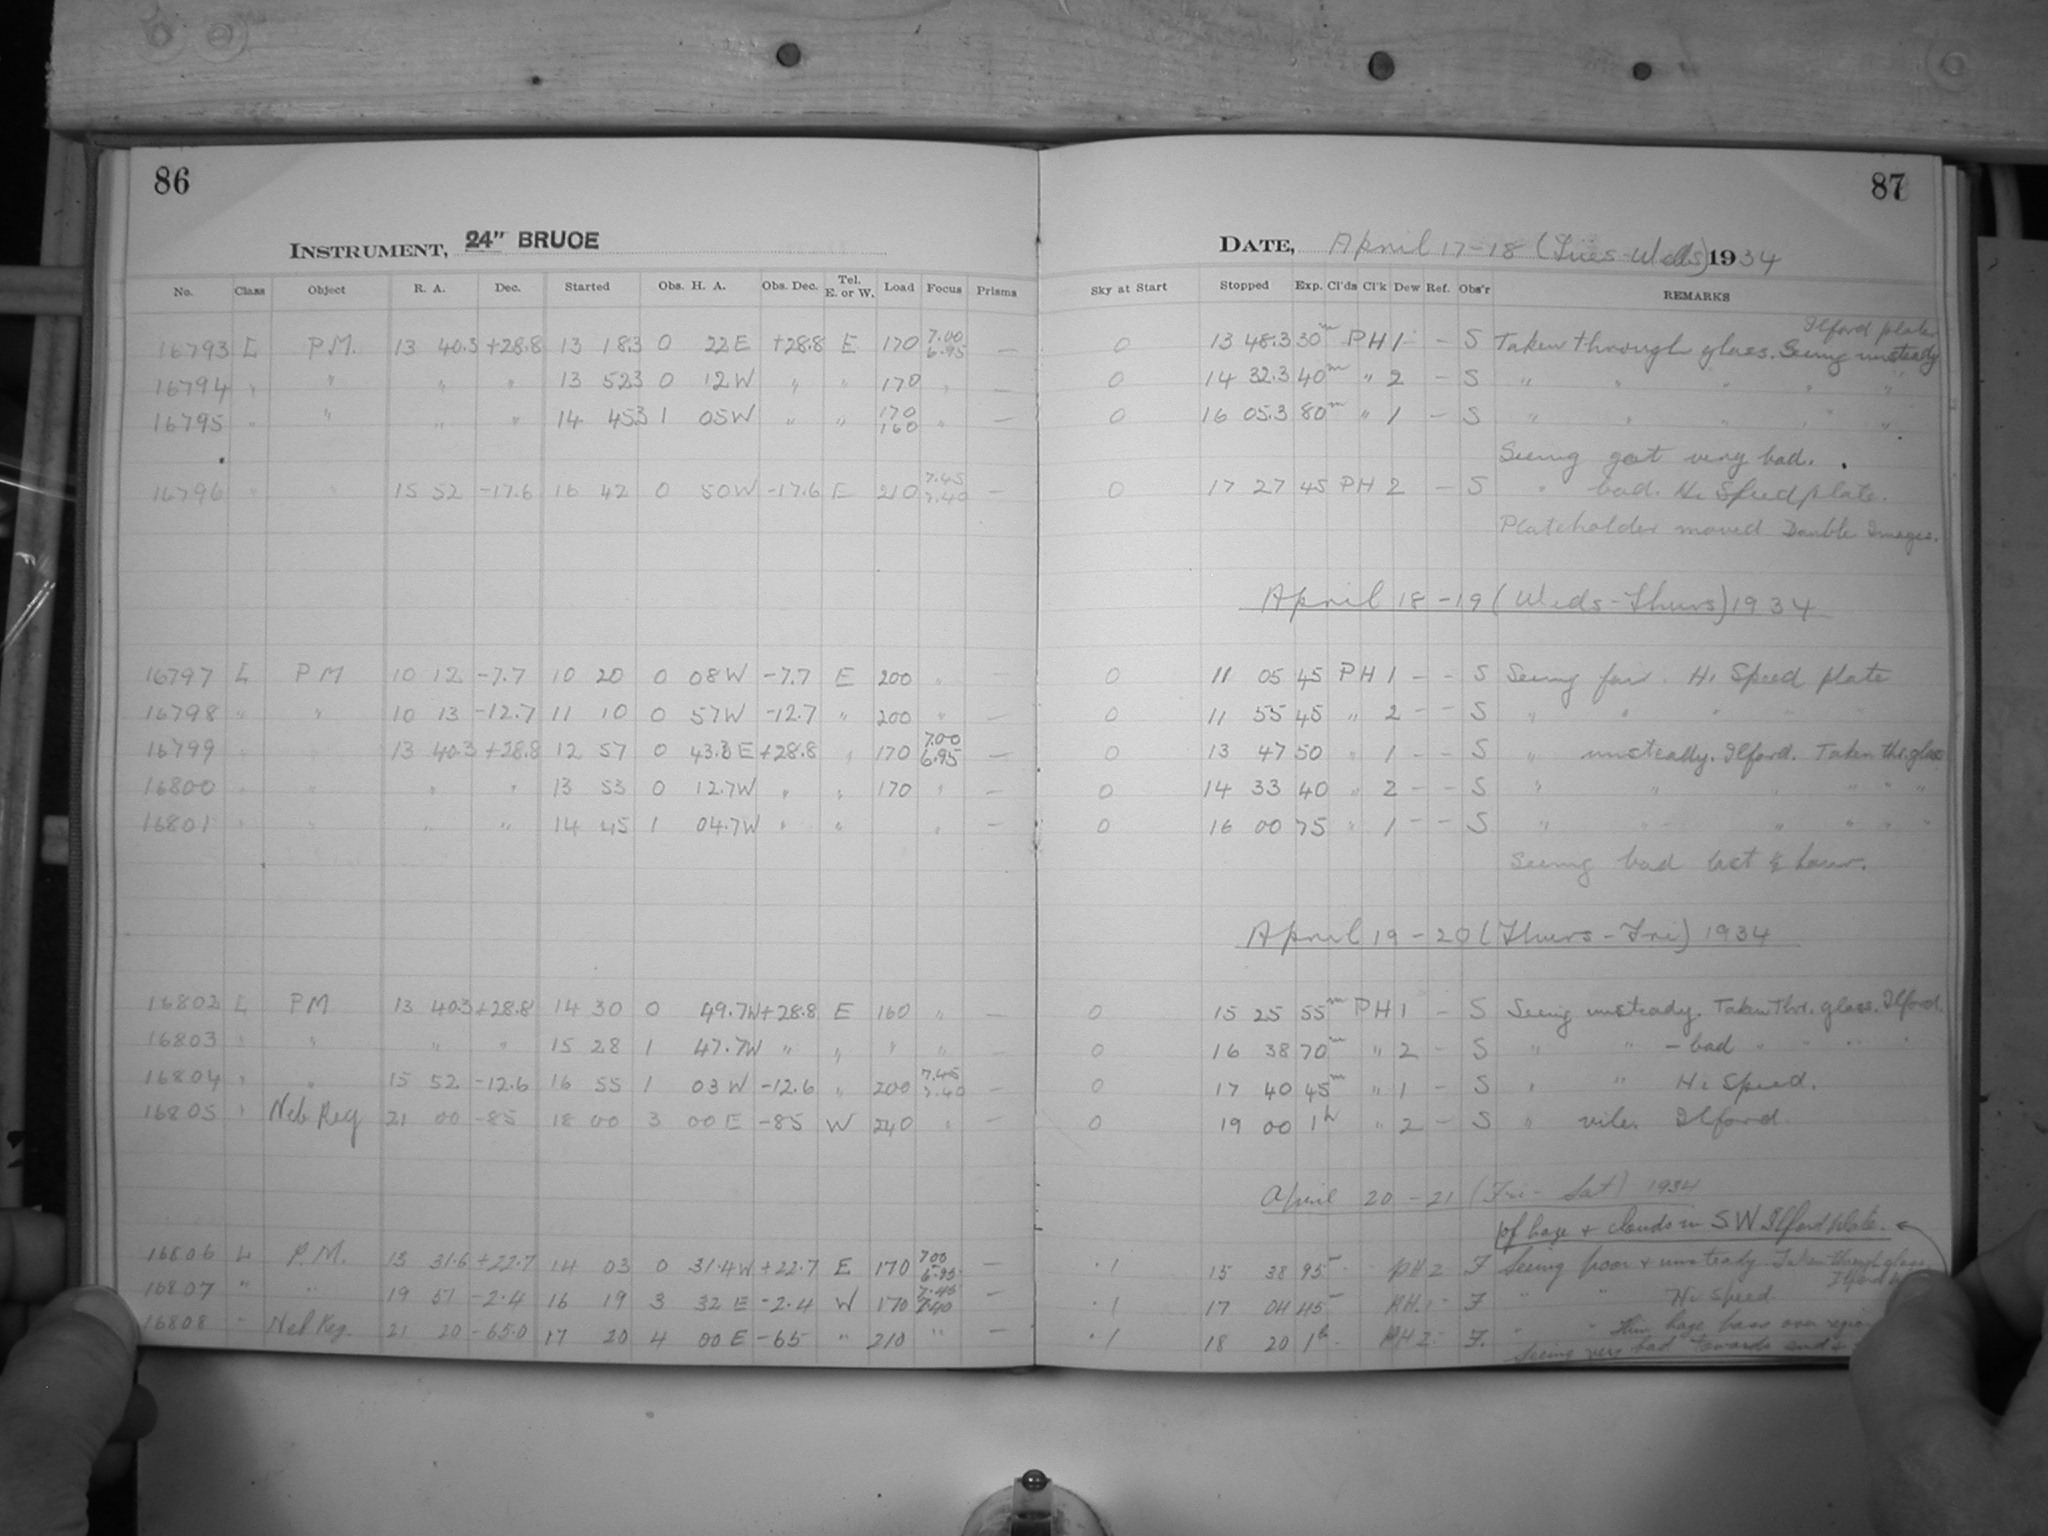 86
87
INSTRUMENT, 24" BRUCE
DATE, April 17-18 (Tues-Weds) 1934
No. Class Object R. A. Dec. Started Obs. H. A. Obs. Dec. Tel. E. or W. Load Focus Prisms Sky at Start Stopped Exp. Cl'ds Cl'k Dew Ref. Obs'r REMARKS
Ilford plate
16793 L P.M. 13 40.3 +28.8 13 18.3 0 22 E +28.8 E 170 7.00 6.95 — 0 13 48.3 30m PH 1 - S Taken through glass. Seeing unsteady
16794 " " " " 13 52.3 0 12 W " " 170 " — 0 14 32.3 40m " 2 - S " " " " "
16795 " " " " 14 45.3 1 05 W " " 170 160 " — 0 16 05.3 80m " 1 - S " " " " "
Seeing got very bad.
16796 " " 15 52 -17.6 16 42 0 50 W -17.6 E 210 7.45 7.40 — 0 17 27 45 PH 2 - S " bad. Hi Speed plate.
Plateholder moved Double Images.
April 18-19 (Weds-Thurs) 1934
16797 L PM 10 12 -7.7 10 20 0 08 W -7.7 E 200 " — 0 11 05 45 PH 1 - - S Seeing fair. Hi Speed plate
16798 " " 10 13 -12.7 11 10 0 57 W -12.7 " 200 " — 0 11 55 45 " 2 - - S " " " " "
16799 " " 13 40.3 +28.8 12 57 0 43.3 E +28.8 " 170 7.00 6.95 — 0 13 47 50 " 1 - - S " unsteady. Ilford. Taken thr. glass
16800 " " " " 13 53 0 12.7 W " " 170 " — 0 14 33 40 " 2 - - S " " " " " "
16801 " " " " 14 45 1 04.7 W " " " — 0 16 00 75 " 1 - - S " " " " " "
Seeing bad last ½ hour.
April 19-20 (Thurs-Fri) 1934
16802 L PM 13 40.3 +28.8 14 30 0 49.7 W +28.8 E 160 " — 0 15 25 55m PH 1 - S Seeing unsteady. Taken Thr. glass. Ilford.
16803 " " " " 15 28 1 47.7 W " " " " — 0 16 38 70m " 2 - S " " - bad " " " "
16804 " " 15 52 -12.6 16 55 1 03 W -12.6 " 200 7.45 7.40 — 0 17 40 45m " 1 - S " " Hi Speed.
16805 " Neb Reg 21 00 -85 18 00 3 00 E -85 W 240 " — 0 19 00 1h " 2 - S " vile. Ilford.
April 20-21 (Fri-Sat) 1934
of haze + clouds in SW Ilford plate.
16806 L P.M. 13 31.6 +22.7 14 03 0 31.4 W +22.7 E 170 7.00 6.95 — .1 15 38 95m PH 2 F Seeing poor + unsteady. Taken through glass
Ilford
16807 " " 19 57 -2.4 16 19 3 32 E -2.4 W 170 7.45 7.40 — .1 17 04 45m PH. 1 - F " " Hi Speed
16808 " Neb Reg. 21 20 -65.0 17 20 4 00 E -65 " 210 " — .1 18 20 1h PH 2 - F. " " Thin haze over region
Seeing very bad towards end +